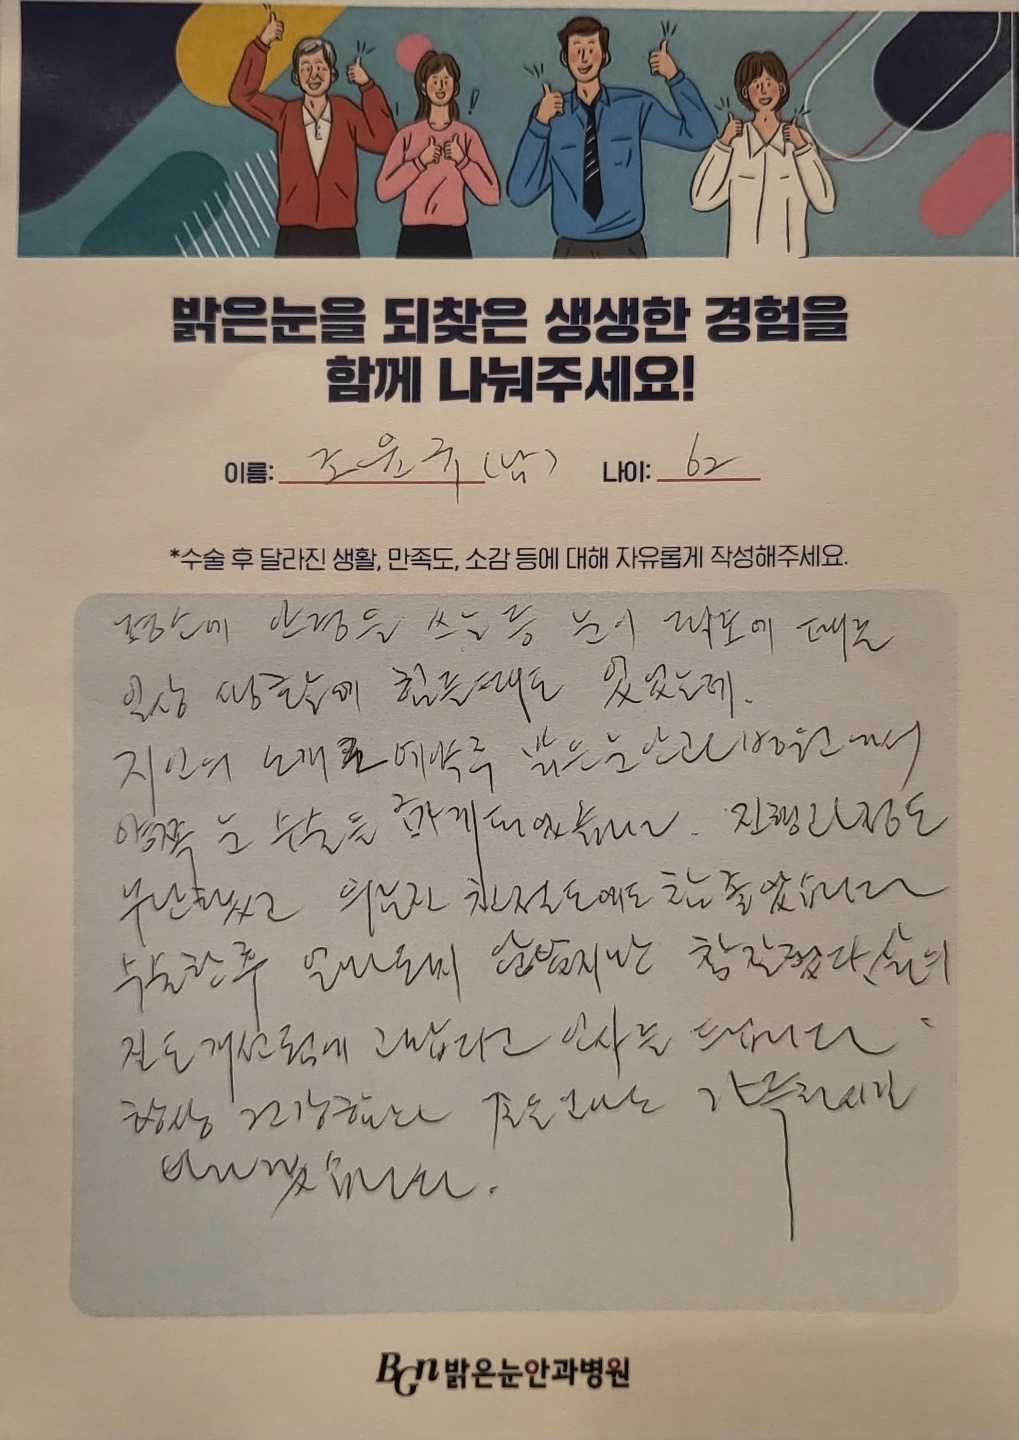 밝은눈을 되찾은 생생한 경험을
함께 나눠주세요!
이름: 조윤귀(남) 나이: 62
*수술 후 달라진 생활, 만족도, 소감 등에 대해 자유롭게 작성해주세요.
평상시에 안경을 쓰는 등 눈이 때문
일상 생활에 힘들때도 있었는데.
지인의 소개로 예약후 밝은눈안과병원에서
양쪽 눈 수술을 하게되었습니다. 진행과정도
무난하였고 의료진 친절도에도 참 좋았습니다
수술한 후 얼마 안됐지만 참 잘했다
고맙다고 인사를 드립니다
항상 건강하고 좋은 일만 가득하시길
바라겠습니다.
BGn 밝은눈안과병원